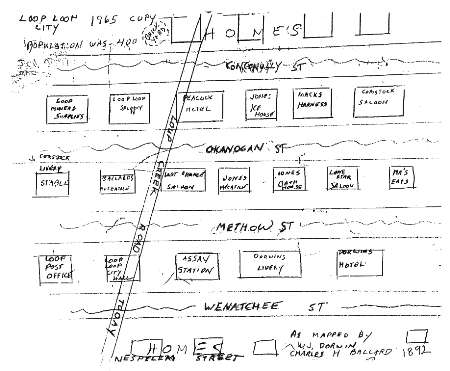 LOOP LOOP 1965 COPY
CITY
POPULATION WAS - 400
HOMES
CONCONULLY ST
LOOP
MINERS
SUPPLIES
LOOP LOOP
SALOON
PEACOCK
HOTEL
JONES
ICE
HOUSE
MACKS
HARNESS
COMSTOCK
SALOON
OKANOGAN ST
COMSTOCK
LIVERY
STABLE
BALLARDS
LAST CHANCE
SALOON
JONES
JONES
HOUSE
LONE
STAR
SALOON
MA'S
EATS
METHOW ST
LOOP
POST
OFFICE
LOOP
LOOP
CITY
HALL
ASSAY
STATION
DORWINS
LIVERY
DORWINS
HOTEL
WENATCHEE ST
LOUP
CREEK
ROAD
TODAY
HOMES
NESPELEM STREET
AS MAPPED BY
W.J. DORWIN
CHARLES H BALLARD 1892